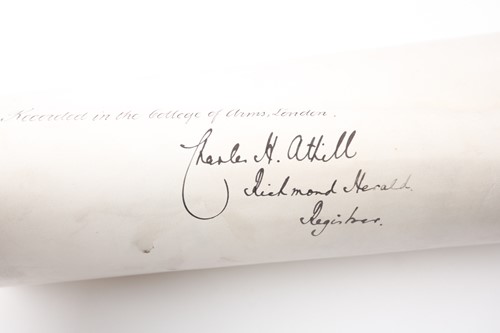 Recorded in the College of Arms, London.
Charles H. Athill
Richmond Herald.
Registrar.